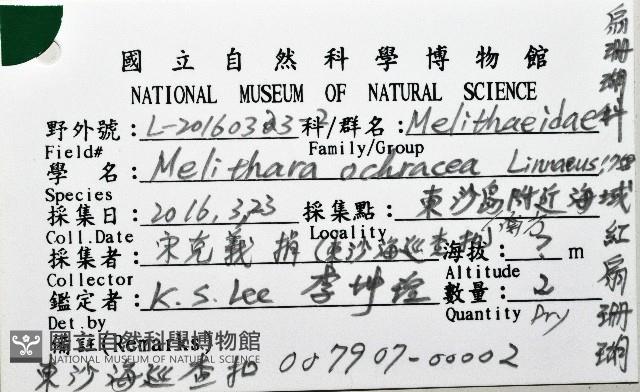 國立自然科學博物館
NATIONAL MUSEUM OF NATURAL SCIENCE
野外號：L-20160323-2 科/群名：Melithaeidae
Field# Family/Group
學名：Melithara ochracea Linnaeus, 1758
Species
採集日：2016.3.23 採集點：東沙島附近海域
Coll.Date Locality
採集者：宋克義 捐 (東沙海巡查扣 海拔：? m
Collector Altitude
鑑定者：K.S. Lee 李坤瑄 數量：2
Det.by Quantity Dry
備註 Remarks
東沙海巡查扣 007907-00002
扇珊瑚科
紅扇珊瑚
國立自然科學博物館
NATIONAL MUSEUM OF NATURAL SCIENCE